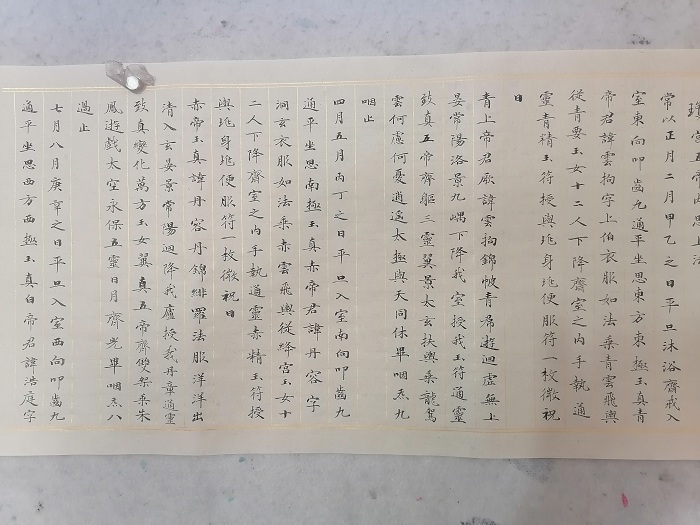 瓊宮五帝
常以正月二月甲乙之日平旦沐浴齋戒入
室東向叩齒九通平坐思東方東極玉真青
帝君諱雲拘字上伯衣服如法乘青雲飛輿
從青要玉女十二人下降齋室之內手執通
靈青精玉符授與兆身兆便服符一枚微祝
曰
青上帝君厥諱雲拘錦帔青帬遊迴虛無上
晏常陽洛景九嵎下降我室授我玉符通靈
致真五帝齊軀三靈翼景太玄扶輿乘龍駕
雲何慮何憂逍遙太極與天同休畢咽炁九
咽止
四月五月丙丁之日平旦入室南向叩齒九
通平坐思南極玉真赤帝君諱丹容字
洞玄衣服如法乘赤雲飛輿從絳宮玉女十
二人下降齋室之內手執通靈赤精玉符授
與兆身兆便服符一枚微祝曰
赤帝玉真諱丹容丹錦緋羅法服洋洋出
清入玄晏景常陽迴降我廬授我丹章通靈
致真變化萬方玉女翼真五帝齊雙駕乘朱
鳳遊戲太空永保五靈日月齊光畢咽炁八
過止
七月八月庚辛之日平旦入室西向叩齒九
通平坐思西方西極玉真白帝君諱浩庭字